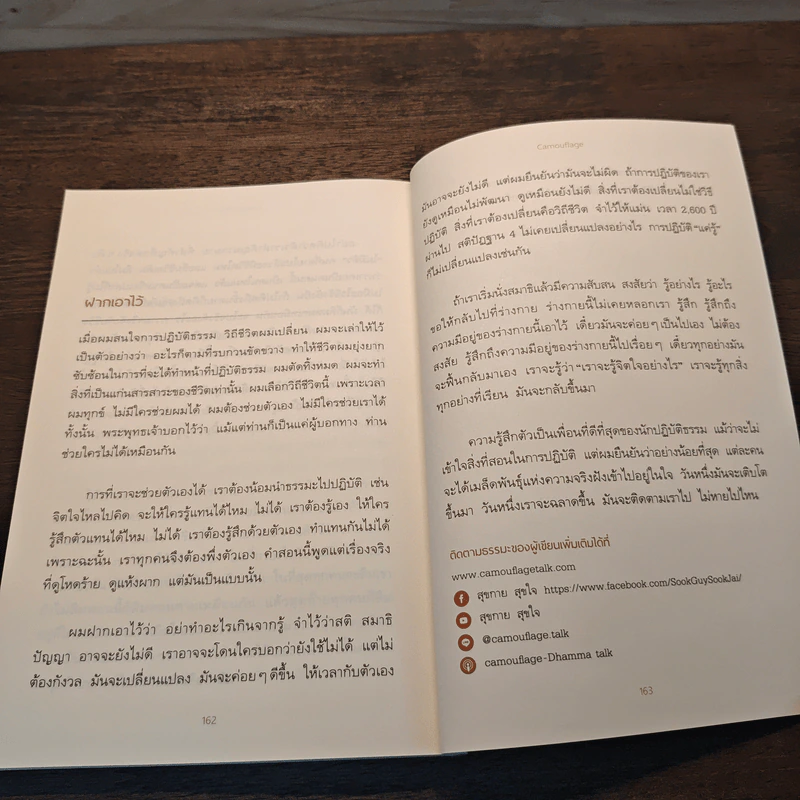 ฝากเอาไว้
เมื่อผมสนใจการปฏิบัติธรรม วิถีชีวิตผมเปลี่ยน ผมจะเล่าให้ไว้
เป็นตัวอย่างว่า อะไรก็ตามที่รบกวนขัดขวาง ทำให้ชีวิตผมยุ่งยาก
ซับซ้อนในการที่จะได้ทำหน้าที่ปฏิบัติธรรม ผมตัดทิ้งหมด ผมจะทำ
สิ่งที่เป็นแก่นสารสาระของชีวิตเท่านั้น ผมเลือกวิถีชีวิตนี้ เพราะเวลา
ผมทุกข์ ไม่มีใครช่วยผมได้ ผมต้องช่วยตัวเอง ไม่มีใครช่วยเราได้
ทั้งนั้น พระพุทธเจ้าบอกไว้ว่า แม้แต่ท่านก็เป็นแค่ผู้บอกทาง ท่าน
ช่วยใครไม่ได้เหมือนกัน
การที่เราจะช่วยตัวเองได้ เราต้องน้อมนำธรรมะไปปฏิบัติ เช่น
จิตใจไหลไปคิด จะให้ใครรู้แทนได้ไหม ไม่ได้ เราต้องรู้เอง ให้ใคร
รู้สึกตัวแทนได้ไหม ไม่ได้ เราต้องรู้สึกด้วยตัวเอง ทำแทนกันไม่ได้
เพราะฉะนั้น เราทุกคนจึงต้องพึ่งตัวเอง คำสอนนี้พูดแต่เรื่องจริง
ที่ดูโหดร้าย ดูแห้งผาก แต่มันเป็นแบบนั้น
ผมฝากเอาไว้ว่า อย่าทำอะไรเกินจากรู้ จำไว้ว่าสติ สมาธิ
ปัญญา อาจจะยังไม่ดี เราอาจจะโดนใครบอกว่ายังใช้ไม่ได้ แต่ไม่
ต้องกังวล มันจะเปลี่ยนแปลง มันจะค่อยๆ ดีขึ้น ให้เวลากับตัวเอง
162
Camouflage
มันอาจจะยังไม่ดี แต่ผมยืนยันว่ามันจะไม่ผิด ถ้าการปฏิบัติของเรา
ยังดูเหมือนไม่พัฒนา ดูเหมือนยังไม่ดี สิ่งที่เราต้องเปลี่ยนไม่ใช่วิธี
ปฏิบัติ สิ่งที่เราต้องเปลี่ยนคือวิถีชีวิต จำไว้ให้แม่น เวลา 2,600 ปี
ผ่านไป สติปัฏฐาน 4 ไม่เคยเปลี่ยนแปลงอย่างไร การปฏิบัติ “แค่รู้”
ก็ไม่เปลี่ยนแปลงเช่นกัน
ถ้าเราเริ่มนั่งสมาธิแล้วมีความสับสน สงสัยว่า รู้อย่างไร รู้อะไร
ขอให้กลับไปที่ร่างกาย ร่างกายนี้ไม่เคยหลอกเรา รู้สึก รู้สึกถึง
ความมีอยู่ของร่างกายนี้เอาไว้ เดี๋ยวมันจะค่อยๆ เป็นไปเอง ไม่ต้อง
สงสัย รู้สึกถึงความมีอยู่ของร่างกายนี้ไปเรื่อยๆ เดี๋ยวทุกอย่างมัน
จะฟื้นกลับมาเอง เราจะรู้ว่า “เราจะรู้จิตใจอย่างไร” เราจะรู้ทุกสิ่ง
ทุกอย่างที่เรียน มันจะกลับขึ้นมา
ความรู้สึกตัวเป็นเพื่อนที่ดีที่สุดของนักปฏิบัติธรรม แม้ว่าจะไม่
เข้าใจสิ่งที่สอนในการปฏิบัติ แต่ผมยืนยันว่าอย่างน้อยที่สุด แต่ละคน
จะได้เมล็ดพันธุ์แห่งความจริงฝังเข้าไปอยู่ในใจ วันหนึ่งมันจะเติบโต
ขึ้นมา วันหนึ่งเราจะฉลาดขึ้น มันจะติดตามเราไป ไม่หายไปไหน
ติดตามธรรมะของผู้เขียนเพิ่มเติมได้ที่
www.camouflagetalk.com
สุขกาย สุขใจ https://www.facebook.com/SookGuySookJai/
สุขกาย สุขใจ
@camouflage.talk
camouflage-Dhamma talk
163